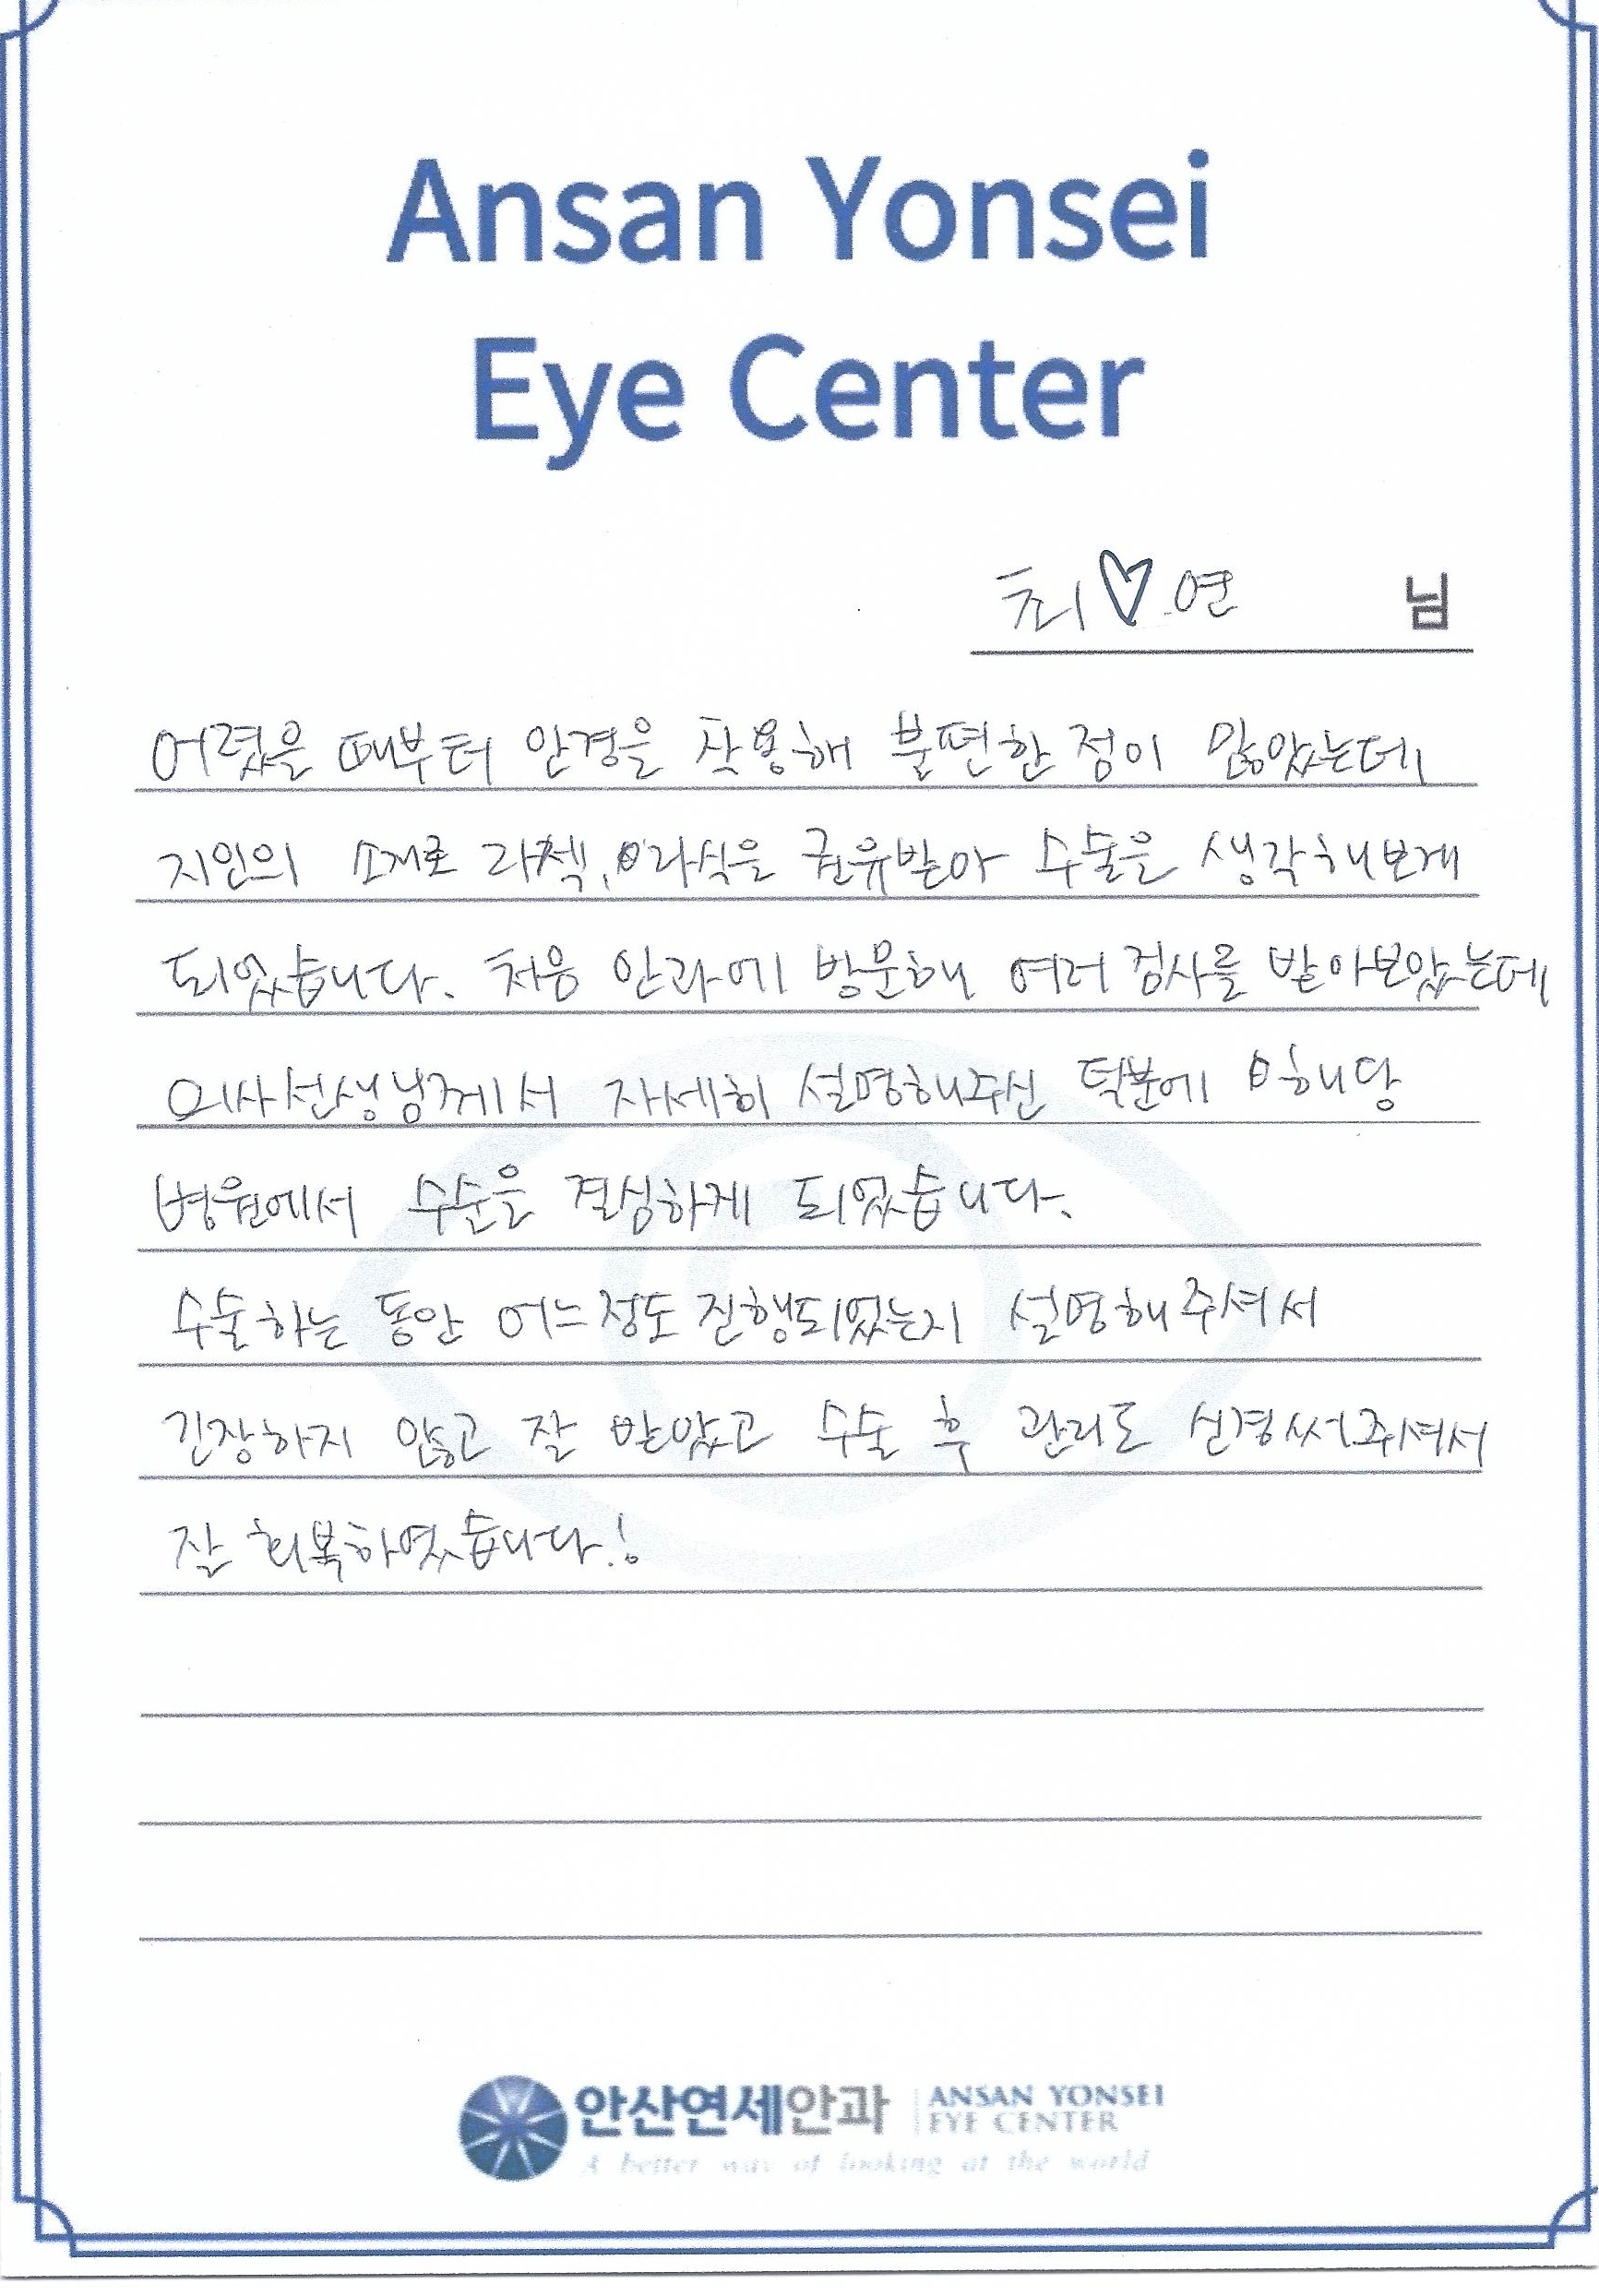 Ansan Yonsei
Eye Center
최♡연 님
어렸을 때부터 안경을 착용해 불편한 점이 많았는데
지인의 소개로 라섹, 라식을 권유받아 수술을 생각해보게
되었습니다. 처음 안과에 방문해 여러 검사를 받아보았는데
의사선생님께서 자세히 설명해주신 덕분에 해당
병원에서 수순을 결심하게 되었습니다.
수술하는 동안 어느정도 진행되었는지 설명해주셔서
긴장하지 않고 잘 받았고 수술 후 관리도 신경써주셔서
잘 회복하였습니다.!
안산연세안과 ANSAN YONSEI
EYE CENTER
A better way of looking at the world